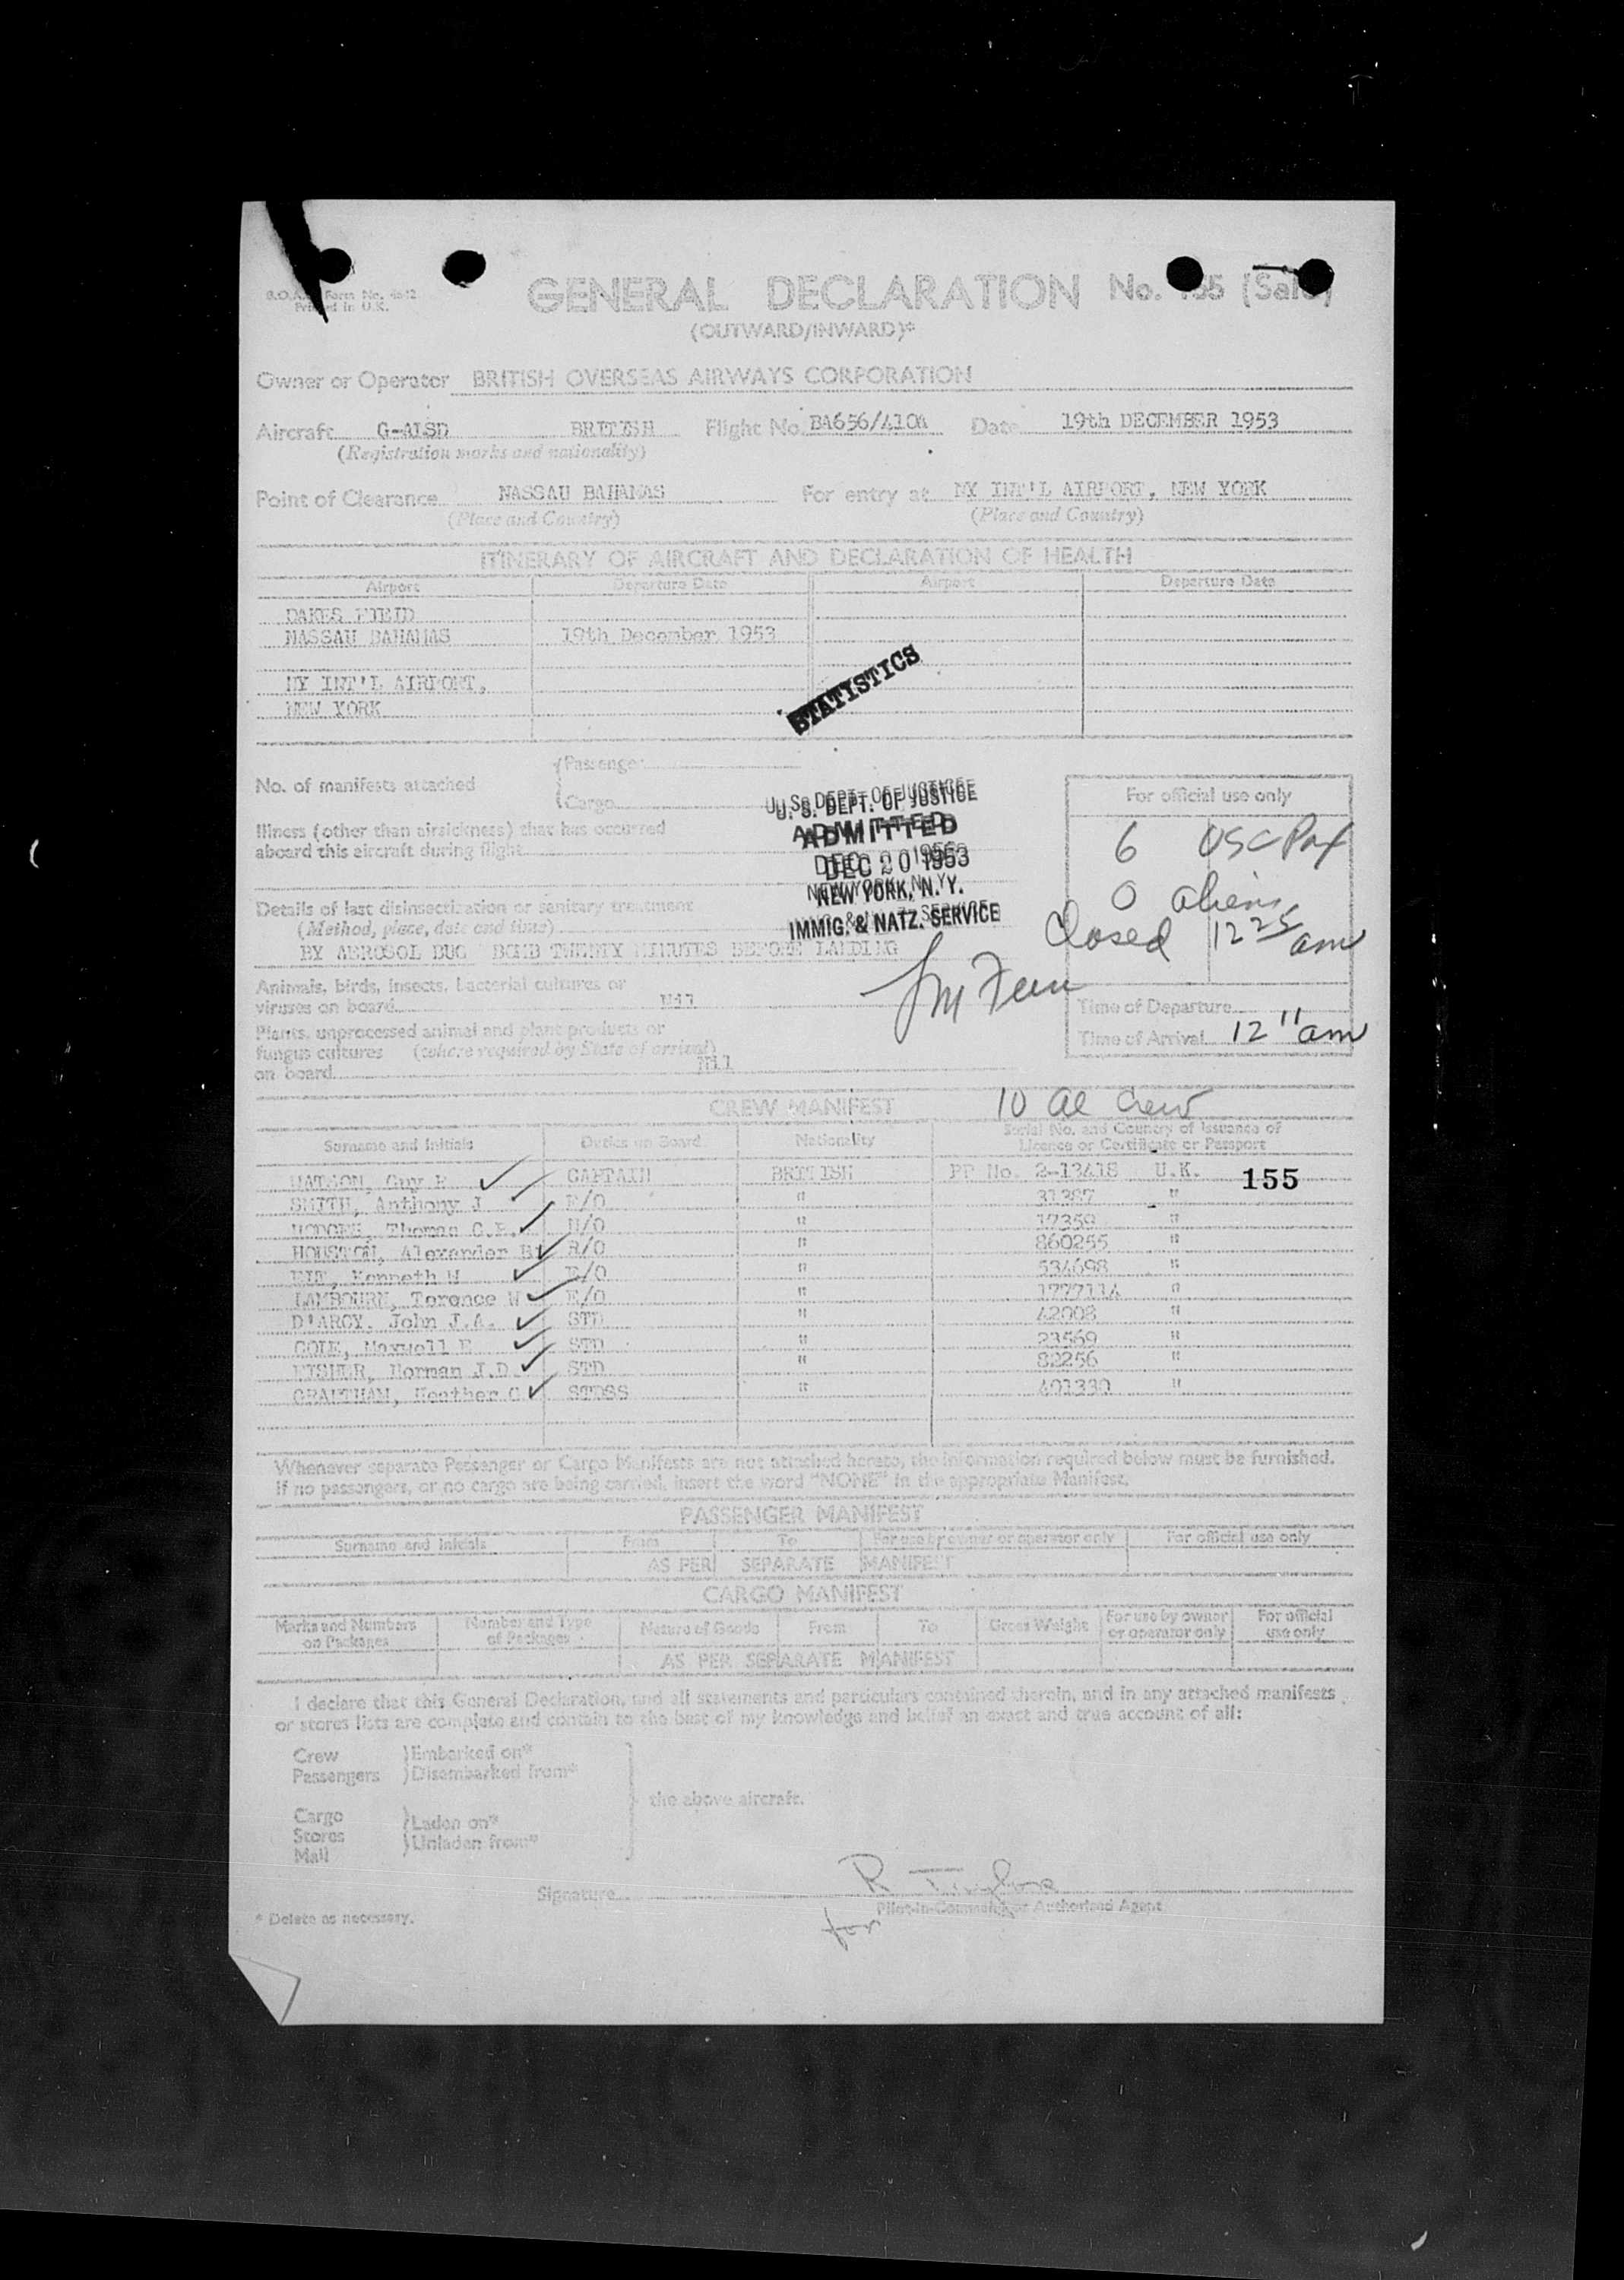 GENERAL DECLARATION No.
(OUTWARD/INWARD)*
Form No.
Printed in U.K.
Owner or Operator BRITISH OVERSEAS AIRWAYS CORPORATION
Aircraft G-ALSD BRITISH Flight No. BA656/410A Date 19th DECEMBER 1953
(Registration marks and nationality)
Point of Clearance NASSAU BAHAMAS For entry at NY INT'L AIRPORT, NEW YORK
(Place and Country) (Place and Country)
ITINERARY OF AIRCRAFT AND DECLARATION OF HEALTH
Airport Departure Date Airport Departure Date
OAKES FIELD
NASSAU BAHAMAS 19th December 1953
NY INT'L AIRPORT,
NEW YORK
STATISTICS
No. of manifests attached
Passenger
Cargo
U. S. DEPT. OF JUSTICE
ADMITTED
DEC 20 1953
NEW YORK, N. Y.
IMMIG. & NATZ. SERVICE
For official use only
6 USC Pax
0 aliens
Closed 12 25 am
Illness (other than airsickness) that has occurred
aboard this aircraft during flight
Details of last disinsectization or sanitary treatment
(Method, place, date and time)
BY AEROSOL BUG BOMB TWENTY MINUTES BEFORE LANDING
Animals, birds, insects, bacterial cultures or
viruses on board Nil
Plants, unprocessed animal and plant products or
fungus cultures (where required by State of arrival)
on board Nil
Time of Departure
Time of Arrival 12 11 am
CREW MANIFEST 10 al crew
Surname and Initials Duties on Board Nationality Serial No. and Country of Issuance of
Licence or Certificate or Passport
WATSON, Guy CAPTAIN BRITISH PP No. 2-13418 U.K. 155
SMITH, Anthony J F/O " 31387 "
HODGES, Thomas C.E. N/O " 17359 "
HOUSTON, Alexander R/O " 860255 "
Kenneth W E/O " 534698 "
LAMBOURN, Terence W E/O " "
D'ARCY, John J.A. STD " 42008 "
COLE, Maxwell STD " 23569 "
FISHER, Norman J.D. STD " 82256 "
GRANTHAM, Heather C STDSS " 401330 "
Whenever separate Passenger or Cargo Manifests are not attached hereto, the information required below must be furnished.
If no passengers, or no cargo are being carried, insert the word "NONE" in the appropriate Manifest.
PASSENGER MANIFEST
Surname and Initials From To For use by owner or operator only For official use only
AS PER SEPARATE MANIFEST
CARGO MANIFEST
Marks and Numbers on Packages Number and Type of Packages Nature of Goods From To Gross Weight For use by owner or operator only For official use only
AS PER SEPARATE MANIFEST
I declare that this General Declaration, and all statements and particulars contained therein, and in any attached manifests
or stores lists are complete and contain to the best of my knowledge and belief an exact and true account of all:
Crew ) Embarked on*
Passengers ) Disembarked from*
the above aircraft.
Cargo ) Laden on*
Stores ) Unladen from*
Mail
Signature R Taylor
for Pilot-in-Command or Authorised Agent
* Delete as necessary.